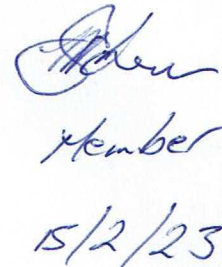 Member
15/2/23